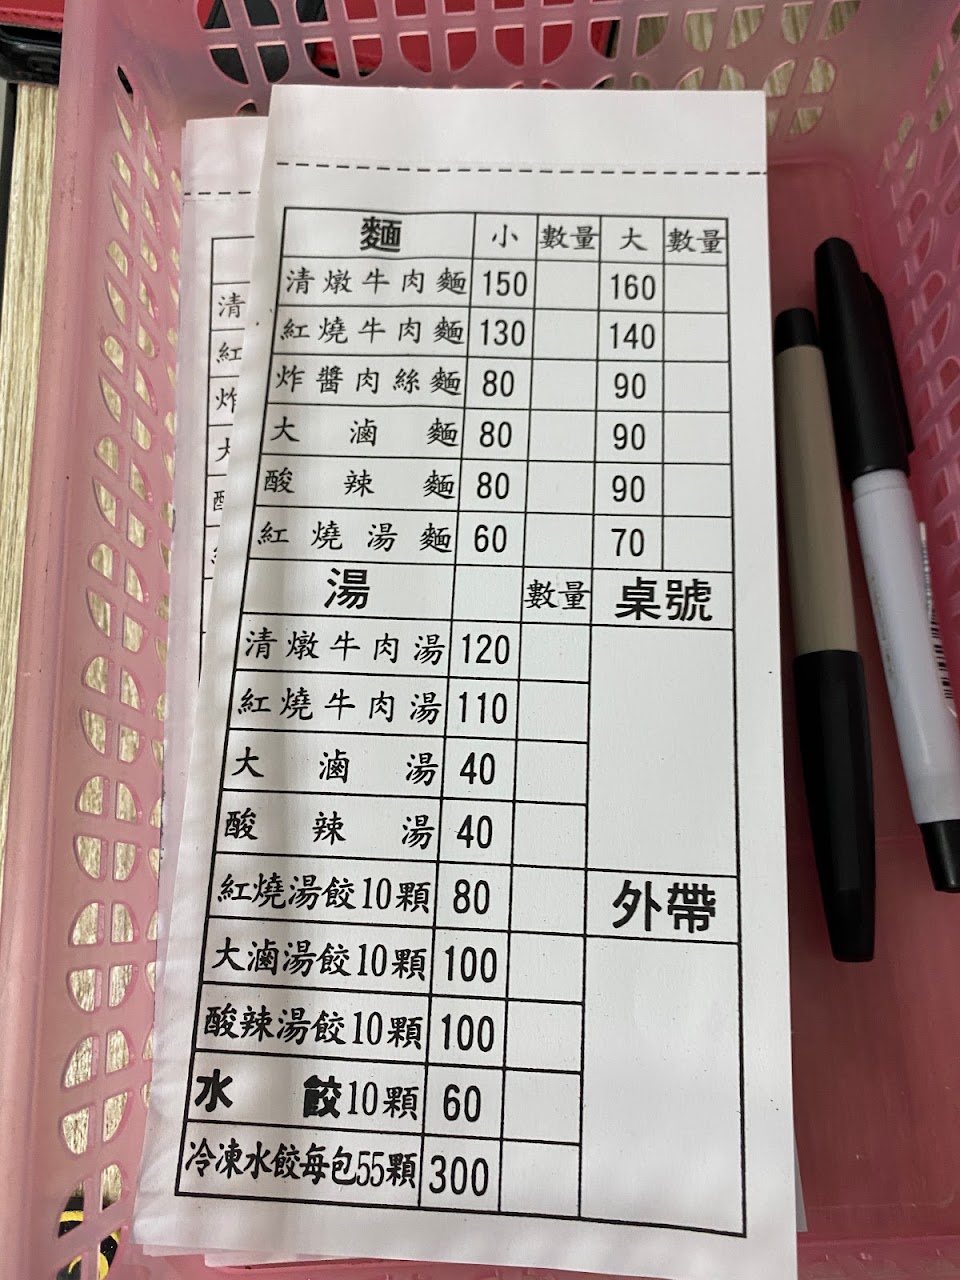 麵 小 數量 大 數量
清燉牛肉麵 150 160
紅燒牛肉麵 130 140
炸醬肉絲麵 80 90
大滷麵 80 90
酸辣麵 80 90
紅燒湯麵 60 70
湯 數量 桌號
清燉牛肉湯 120
紅燒牛肉湯 110
大滷湯 40
酸辣湯 40
紅燒湯餃10顆 80 外帶
大滷湯餃10顆 100
酸辣湯餃10顆 100
水餃10顆 60
冷凍水餃每包55顆 300
清
紅
炸
大